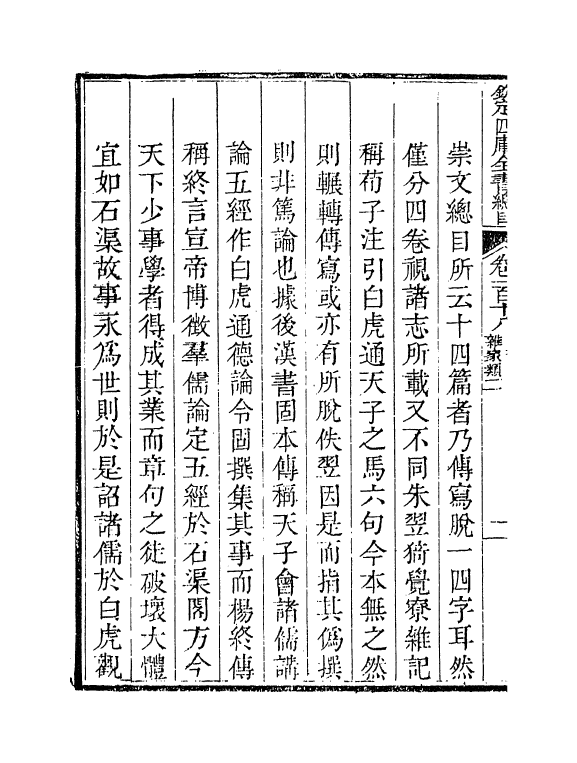 欽定四庫全書總目
卷一百十八
雜家類二
崇文總目所云十四篇者乃傳寫脫一四字耳然
僅分四卷視諸志所載又不同朱翌猗覺寮雜記
稱荀子注引白虎通天子之馬六句今本無之然
則輾轉傳寫或亦有所脫佚翌因是而指其偽撰
則非篤論也據後漢書固本傳稱天子會諸儒講
論五經作白虎通德論令固撰集其事而楊終傳
稱終言宣帝博徵羣儒論定五經於石渠閣方今
天下少事學者得成其業而章句之徒破壞大體
宜如石渠故事永爲世則於是詔諸儒於白虎觀